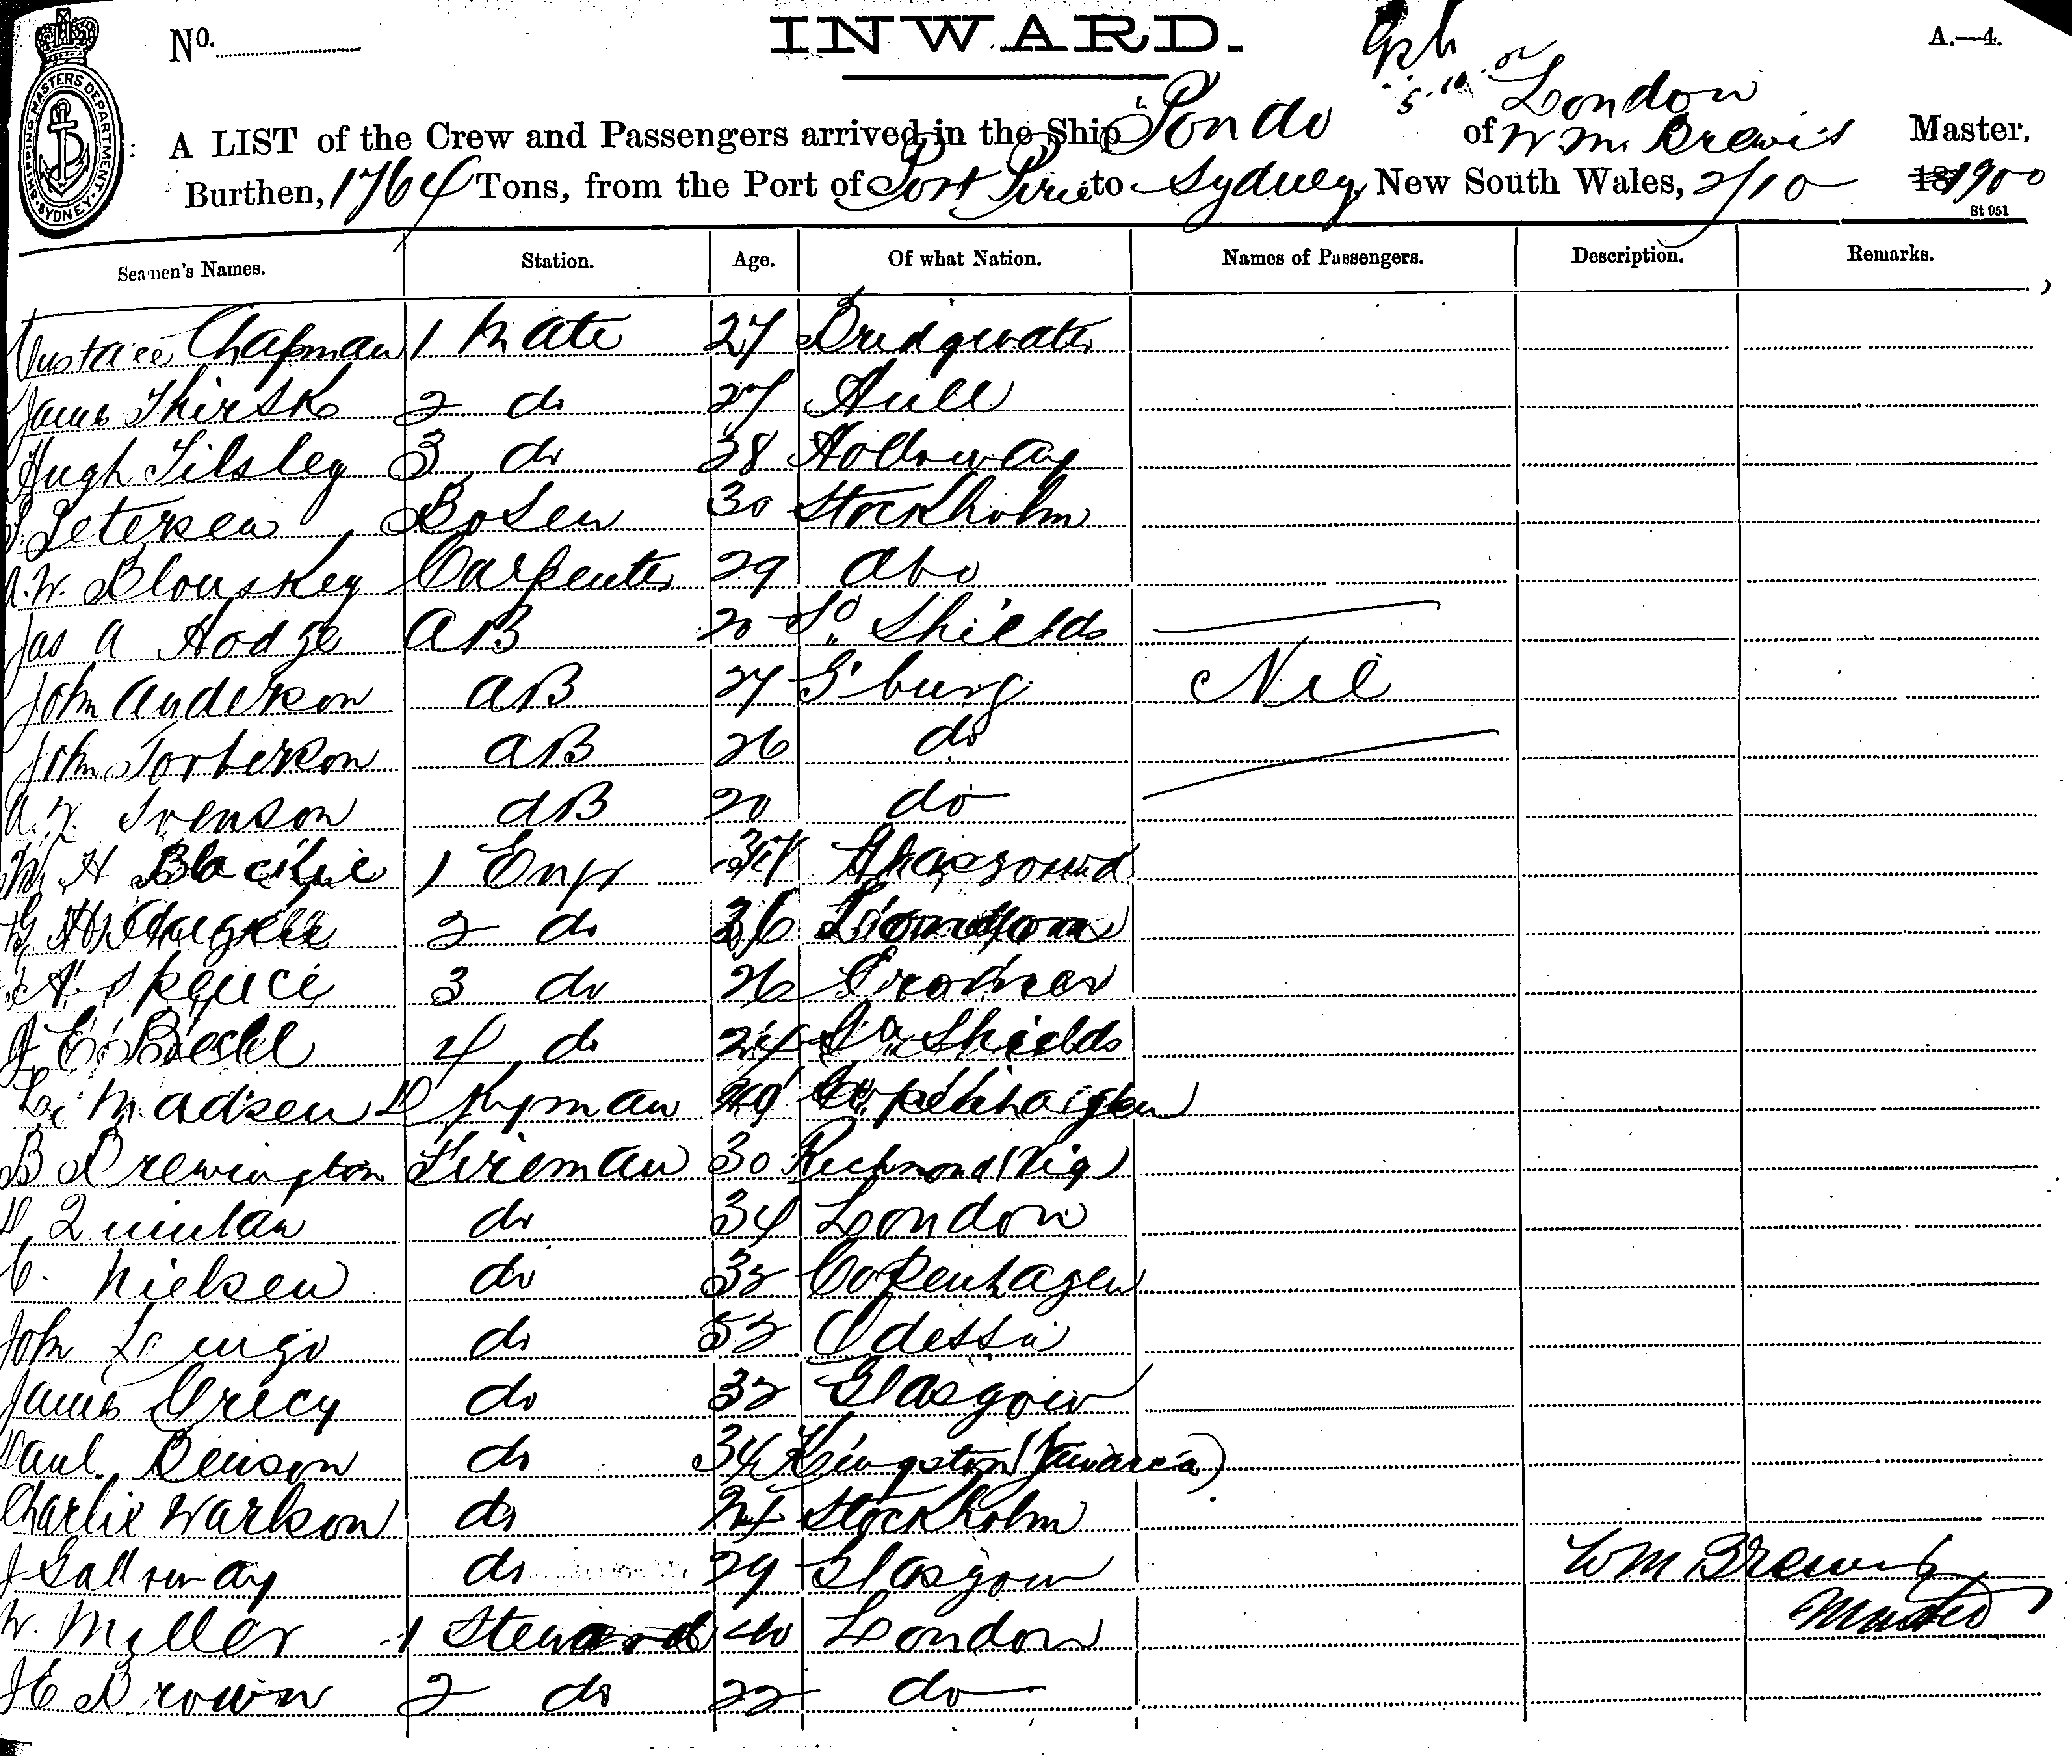 No.
INWARD.
A.—4.
SHIPPING MASTERS DEPARTMENT
SYDNEY
London
A LIST of the Crew and Passengers arrived in the Ship Pondo of Wm Brewis Master,
Burthen, 1764 Tons, from the Port of Port Pirie to Sydney, New South Wales, 2/10 1900
St 951
Seamen's Names. Station. Age. Of what Nation. Names of Passengers. Description. Remarks.
Eustace Chapman 1 Mate 27 Bridgwater
James Thirsk 2 do 27 Hull
Hugh Tilsley 3 do 28 Holloway
Petersen Bosen 30 Stockholm
A.W. Blouskey Carpenter 29 Abo
Jas A Hodge AB 20 So Shields
John Anderson AB 27 G'burg Nil
John Torberson AB 26 do
Svenson AB 20 do
H 1 Engr
2 do 36 London
A. Spence 3 do 26
J E Beell 4 do 24 So Shields
L. Madsen Dkyman Copenhagen
B Drewington Fireman 30 Richmond (Vic)
D. Quinlan do 34 London
C. Nielsen do 32 Copenhagen
John do 52 Odessa
James Grecy do 32 Glasgow
Paul Benson do 34 Kingston (Jamaica)
Charlie Warkson do 24 Stockholm
J Galloway do 29 Glasgow
W. Miller 1 Steward 40 London
J E Brown 2 do 22 do
WM Brewis
Master